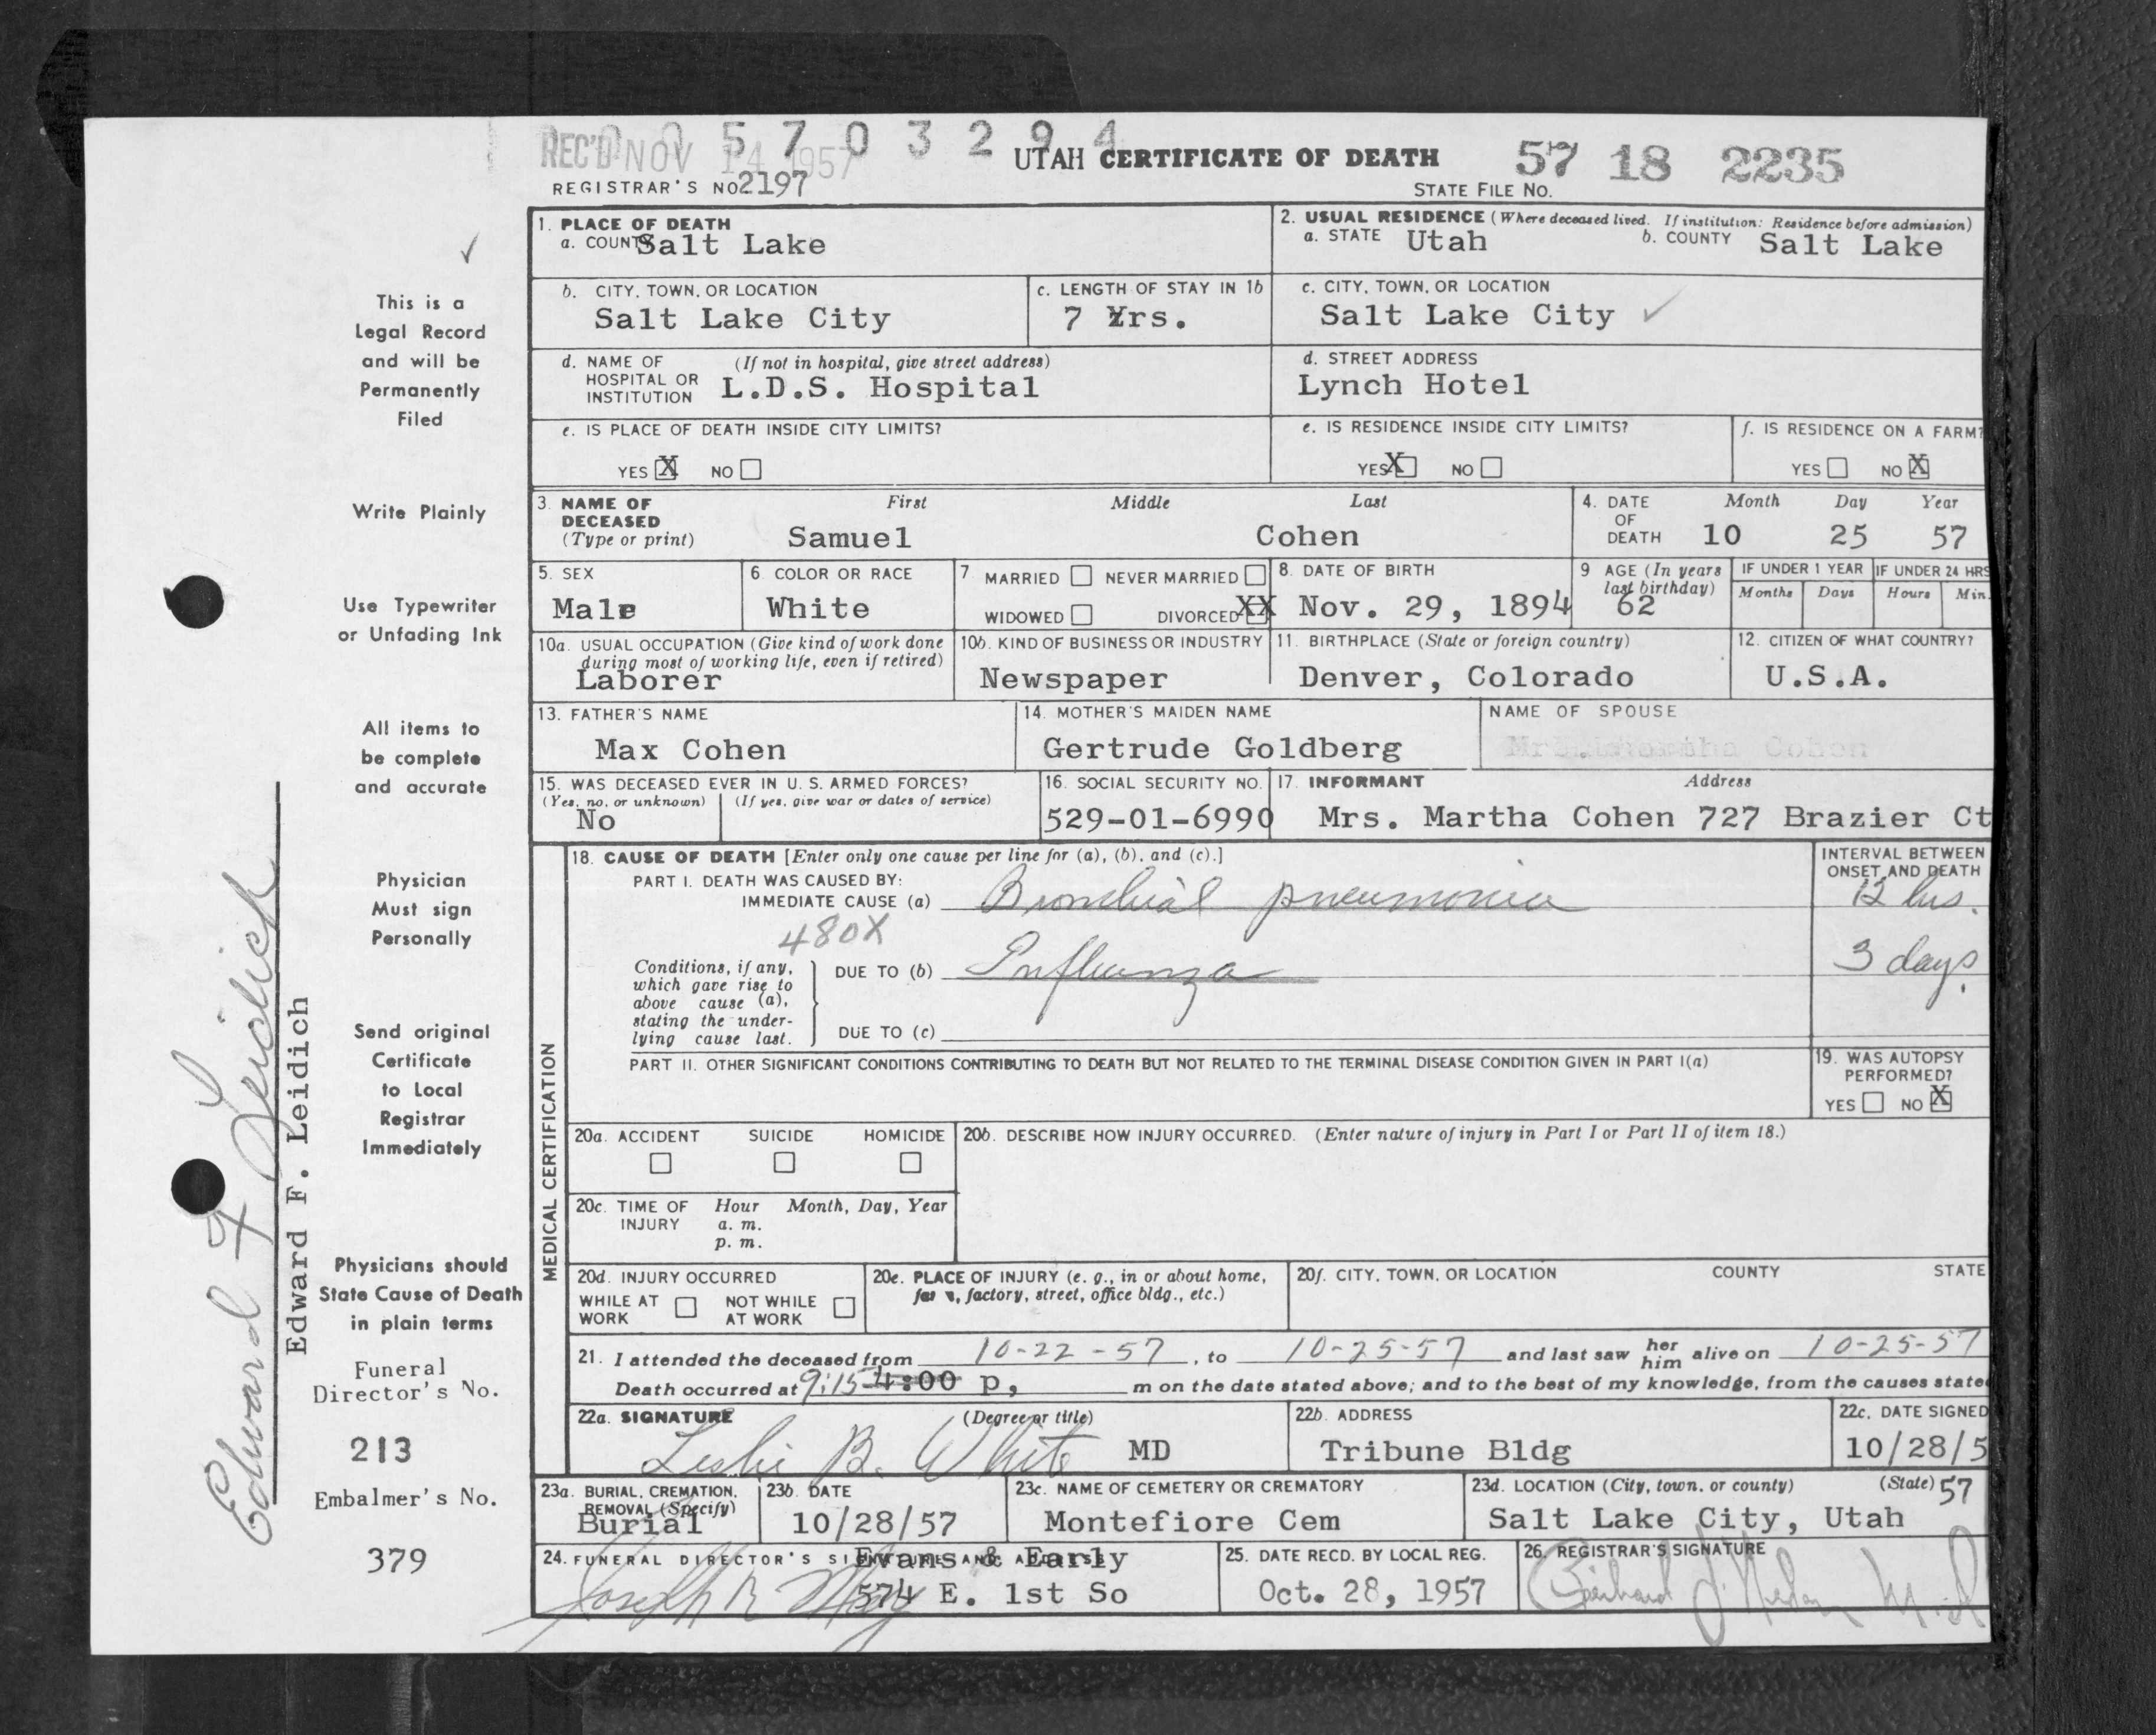 REC'D NOV 14 1957
5 7 0 3 2 9 4
UTAH CERTIFICATE OF DEATH
57 18 2235
REGISTRAR'S NO 2197
STATE FILE NO.
1. PLACE OF DEATH
a. COUNTY Salt Lake
2. USUAL RESIDENCE (Where deceased lived. If institution: Residence before admission)
a. STATE Utah b. COUNTY Salt Lake
b. CITY, TOWN, OR LOCATION
Salt Lake City
c. LENGTH OF STAY IN 1b
7 Yrs.
c. CITY, TOWN, OR LOCATION
Salt Lake City ✓
d. NAME OF HOSPITAL OR INSTITUTION (If not in hospital, give street address)
L.D.S. Hospital
d. STREET ADDRESS
Lynch Hotel
e. IS PLACE OF DEATH INSIDE CITY LIMITS?
YES X NO
e. IS RESIDENCE INSIDE CITY LIMITS?
YES X NO
f. IS RESIDENCE ON A FARM?
YES NO X
3. NAME OF DECEASED (Type or print)
First Middle Last
Samuel Cohen
4. DATE OF DEATH
Month Day Year
10 25 57
5. SEX
Male
6. COLOR OR RACE
White
7 MARRIED NEVER MARRIED
WIDOWED DIVORCED XX
8. DATE OF BIRTH
Nov. 29, 1894
9 AGE (In years last birthday)
62
IF UNDER 1 YEAR
Months Days
IF UNDER 24 HRS
Hours Min.
10a. USUAL OCCUPATION (Give kind of work done during most of working life, even if retired)
Laborer
10b. KIND OF BUSINESS OR INDUSTRY
Newspaper
11. BIRTHPLACE (State or foreign country)
Denver, Colorado
12. CITIZEN OF WHAT COUNTRY?
U.S.A.
13. FATHER'S NAME
Max Cohen
14. MOTHER'S MAIDEN NAME
Gertrude Goldberg
NAME OF SPOUSE
15. WAS DECEASED EVER IN U. S. ARMED FORCES?
(Yes, no, or unknown) (If yes, give war or dates of service)
No
16. SOCIAL SECURITY NO.
529-01-6990
17. INFORMANT Address
Mrs. Martha Cohen 727 Brazier Ct
MEDICAL CERTIFICATION
18. CAUSE OF DEATH [Enter only one cause per line for (a), (b), and (c).]
PART I. DEATH WAS CAUSED BY:
IMMEDIATE CAUSE (a) Bronchial pneumonia
480X
INTERVAL BETWEEN ONSET AND DEATH
12 hrs.
Conditions, if any, which gave rise to above cause (a), stating the underlying cause last.
DUE TO (b) Influenza
3 days
DUE TO (c)
PART II. OTHER SIGNIFICANT CONDITIONS CONTRIBUTING TO DEATH BUT NOT RELATED TO THE TERMINAL DISEASE CONDITION GIVEN IN PART I(a)
19. WAS AUTOPSY PERFORMED?
YES NO X
20a. ACCIDENT SUICIDE HOMICIDE
20b. DESCRIBE HOW INJURY OCCURRED. (Enter nature of injury in Part I or Part II of item 18.)
20c. TIME OF INJURY Hour Month, Day, Year
a. m.
p. m.
20d. INJURY OCCURRED
WHILE AT WORK NOT WHILE AT WORK
20e. PLACE OF INJURY (e. g., in or about home, farm, factory, street, office bldg., etc.)
20f. CITY, TOWN, OR LOCATION COUNTY STATE
21. I attended the deceased from 10-22-57, to 10-25-57 and last saw her him alive on 10-25-57
Death occurred at 9:15 4:00 p, m on the date stated above; and to the best of my knowledge, from the causes state
22a. SIGNATURE (Degree or title)
Leslie B. White MD
22b. ADDRESS
Tribune Bldg
22c. DATE SIGNED
10/28/5
57
23a. BURIAL, CREMATION, REMOVAL (Specify)
Burial
23b. DATE
10/28/57
23c. NAME OF CEMETERY OR CREMATORY
Montefiore Cem
23d. LOCATION (City, town, or county) (State)
Salt Lake City, Utah
24. FUNERAL DIRECTOR'S SIGNATURE AND ADDRESS
Evans & Early
574 E. 1st So
25. DATE RECD. BY LOCAL REG.
Oct. 28, 1957
26. REGISTRAR'S SIGNATURE
✓
This is a
Legal Record
and will be
Permanently
Filed
Write Plainly
Use Typewriter
or Unfading Ink
All items to
be complete
and accurate
Physician
Must sign
Personally
Send original
Certificate
to Local
Registrar
Immediately
Physicians should
State Cause of Death
in plain terms
Funeral
Director's No.
213
Embalmer's No.
379
Edward F Leidich
Edward F. Leidich